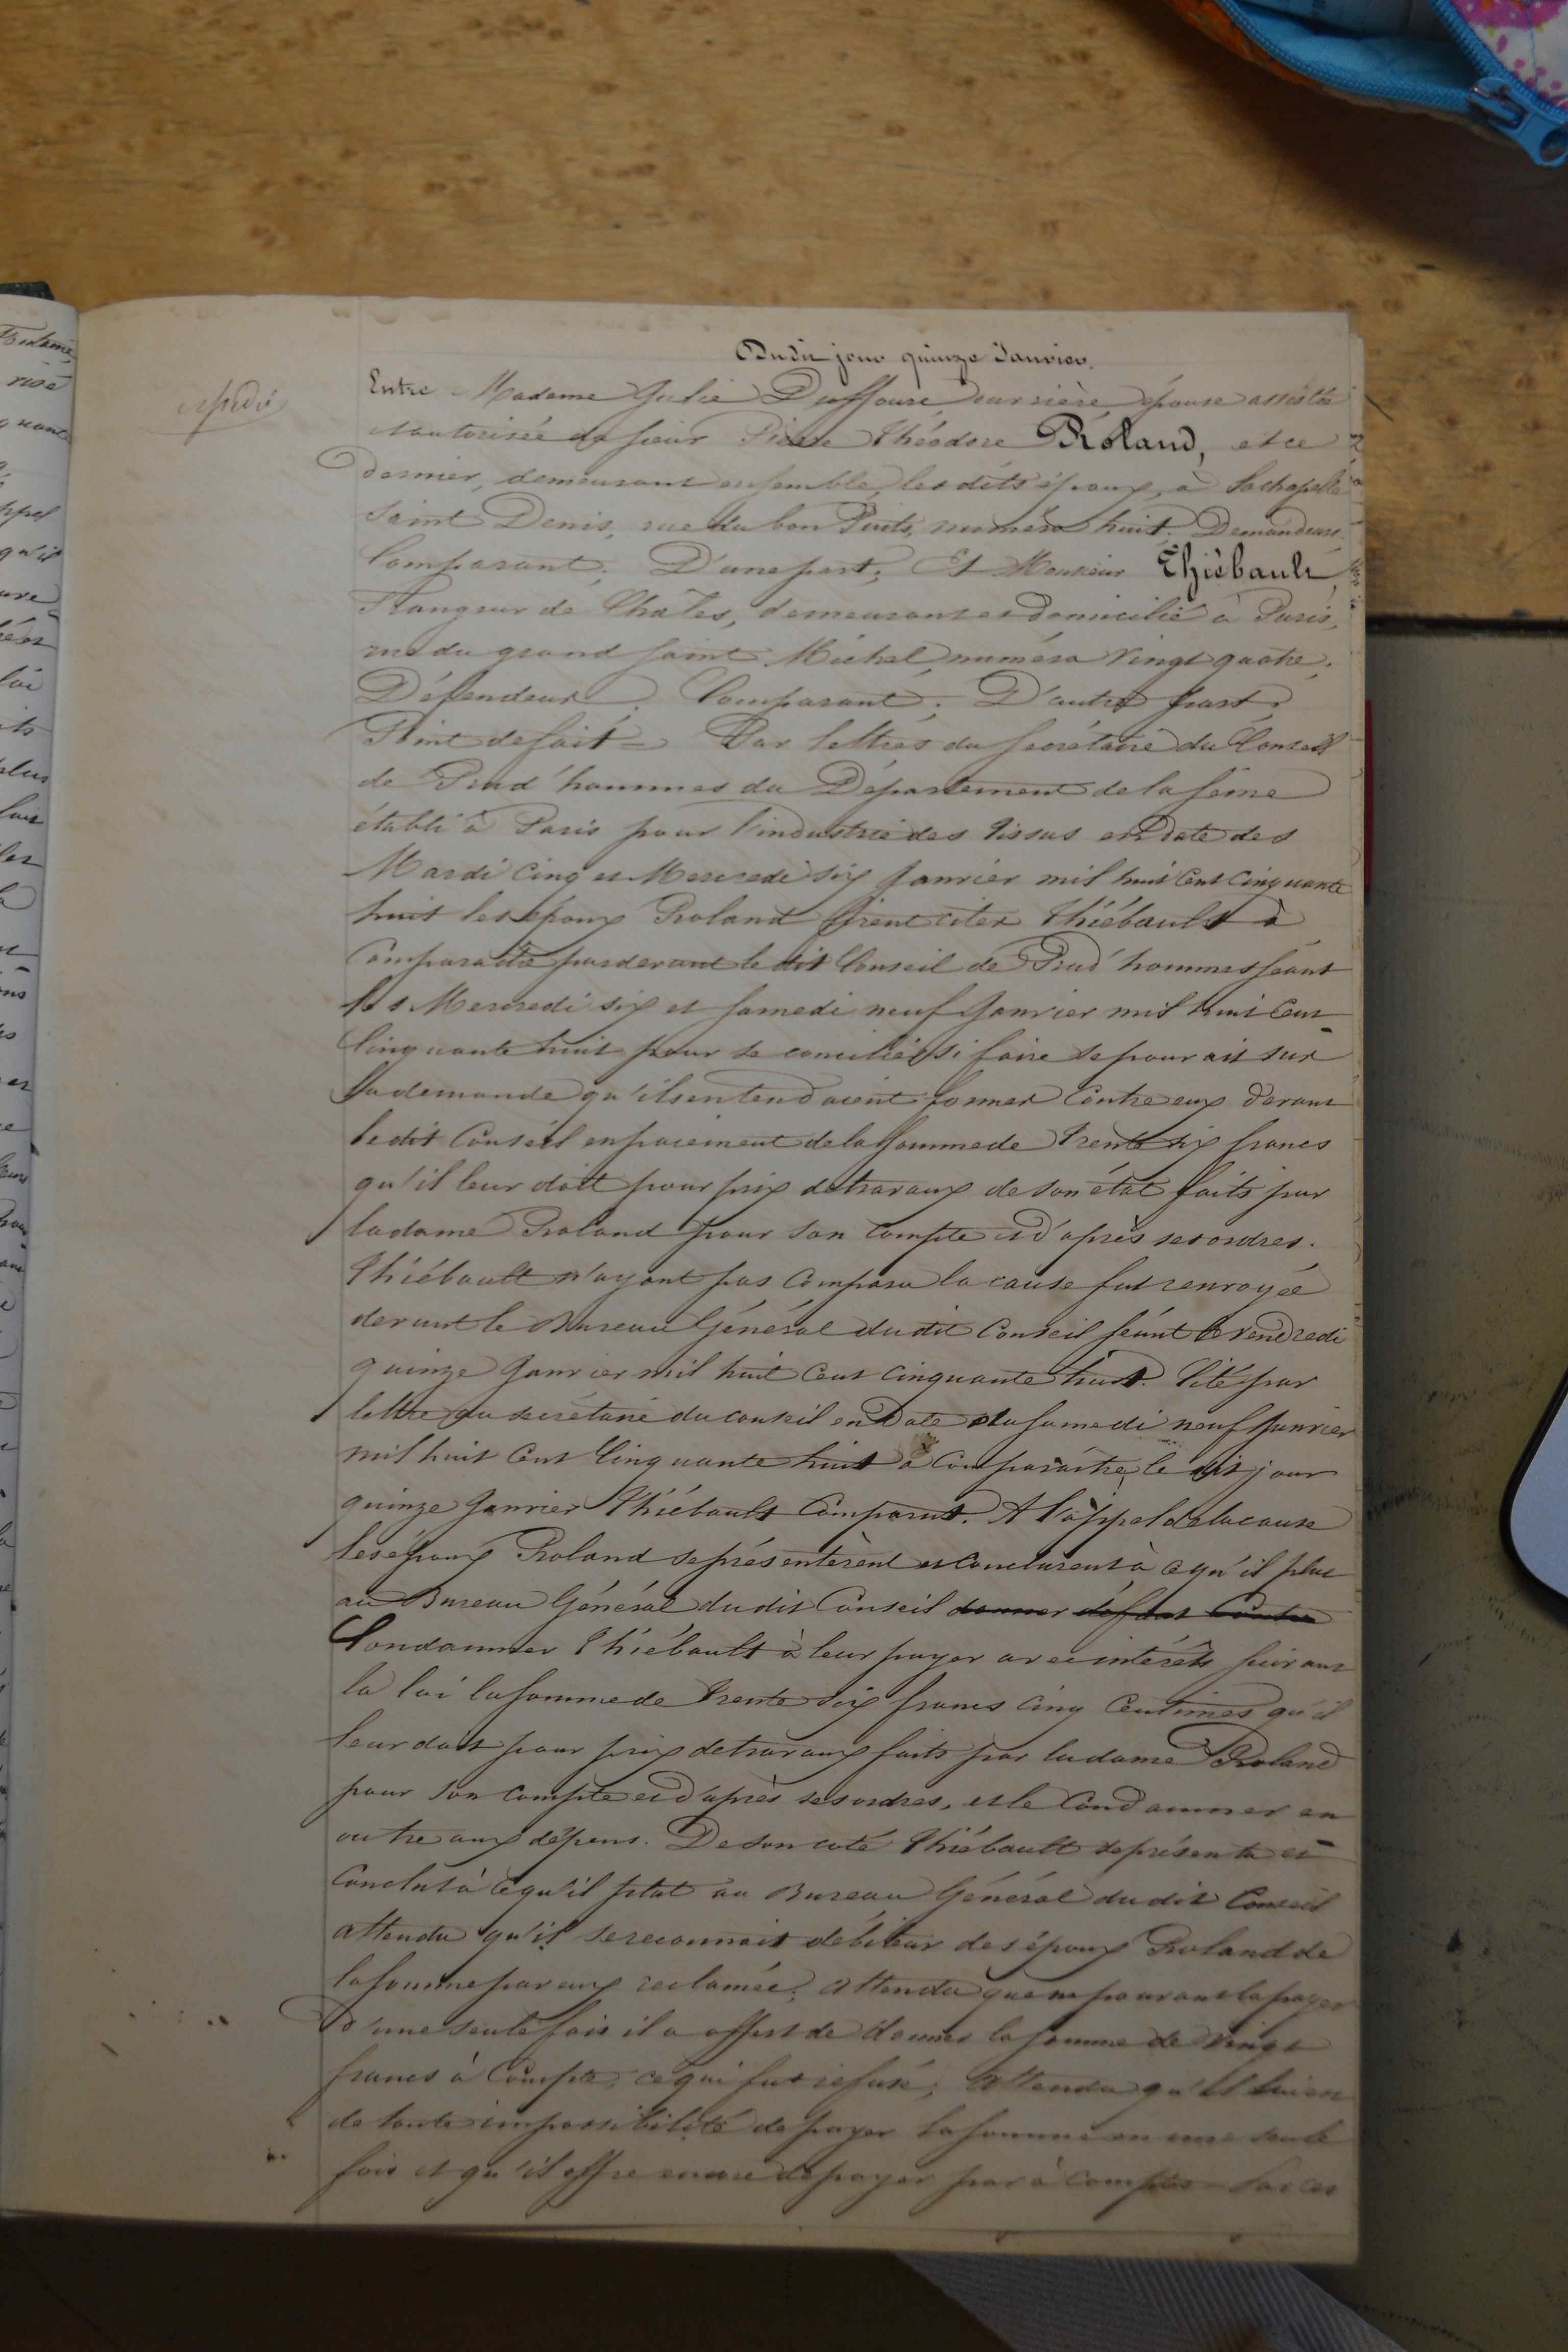 Dudit jour quinze Janvier.
Entre Madame Julie Duffoure, ouvrière, épouse assistée
et autorisée du sieur Pierre Théodore Roland, et ce
dernier, demeurant ensemble, les dits époux, à Lachapelle
Saint Denis, rue du bon Puits, numéro huit. Demandeurs.
Comparant; D'une part; Et Monsieur Thiébault,
Frangeur de Châles, demeurant et domicilié à Paris,
rue du grand saint Michel, numéro vingt quatre;
Défendeur. Comparant; D'autre part.
Point de fait – Par lettres du secrétaire du Conseil
de Prud'hommes du Département de la seine
établi à Paris pour l'industrie des tissus en date des
Mardi cinq et Mercredi six Janvier mil huit cent cinquante
huit les époux Roland firent citer Thiébault à
comparaître pardevant le dit Conseil de Prud'hommes séant
les Mercredi six et samedi neuf Janvier mil huit cent
cinquante huit pour se concilier si faire se pouvait sur
la demande qu'ils entendaient former contre eux devant
le dit Conseil en paiement de la somme de trente six francs
qu'il leur doit pour prix de travaux de son état faits par
la dame Roland pour son compte et d'après ses ordres.
Thiébault n'ayant pas comparu la cause fut renvoyée
devant le Bureau Général du dit Conseil séant le vendredi
quinze Janvier mil huit cent cinquante huit. Cité par
lettre du secrétaire du conseil en date du samedi neuf Janvier
mil huit cent cinquante huit à comparaître le dit jour
quinze Janvier Thiébault comparut. A l'appel de la cause
les époux Roland se présentèrent et conclurent à ce qu'il plut
au Bureau Général du dit Conseil donner défaut contre
Condamner Thiébault à leur payer avec intérêts suivant
la loi la somme de trente six francs cinq centimes qu'il
leur doit pour prix de travaux faits par la dame Roland
pour son compte et d'après ses ordres, et le condamner en
outre aux dépens. De son coté Thiébault se présenta et
conclut à ce qu'il plut au Bureau Général du dit Conseil
attendu qu'il se reconnait débiteur des époux Roland de
la somme par eux réclamée; attendu que ne pouvant la payer
d'une seule fois il a offert de donner la somme de vingt
francs à compte, ce qui fut refusé; Attendu qu'il
de toute impossibilité de payer la somme en une seule
fois et qu'il offre encore de payer par à comptes